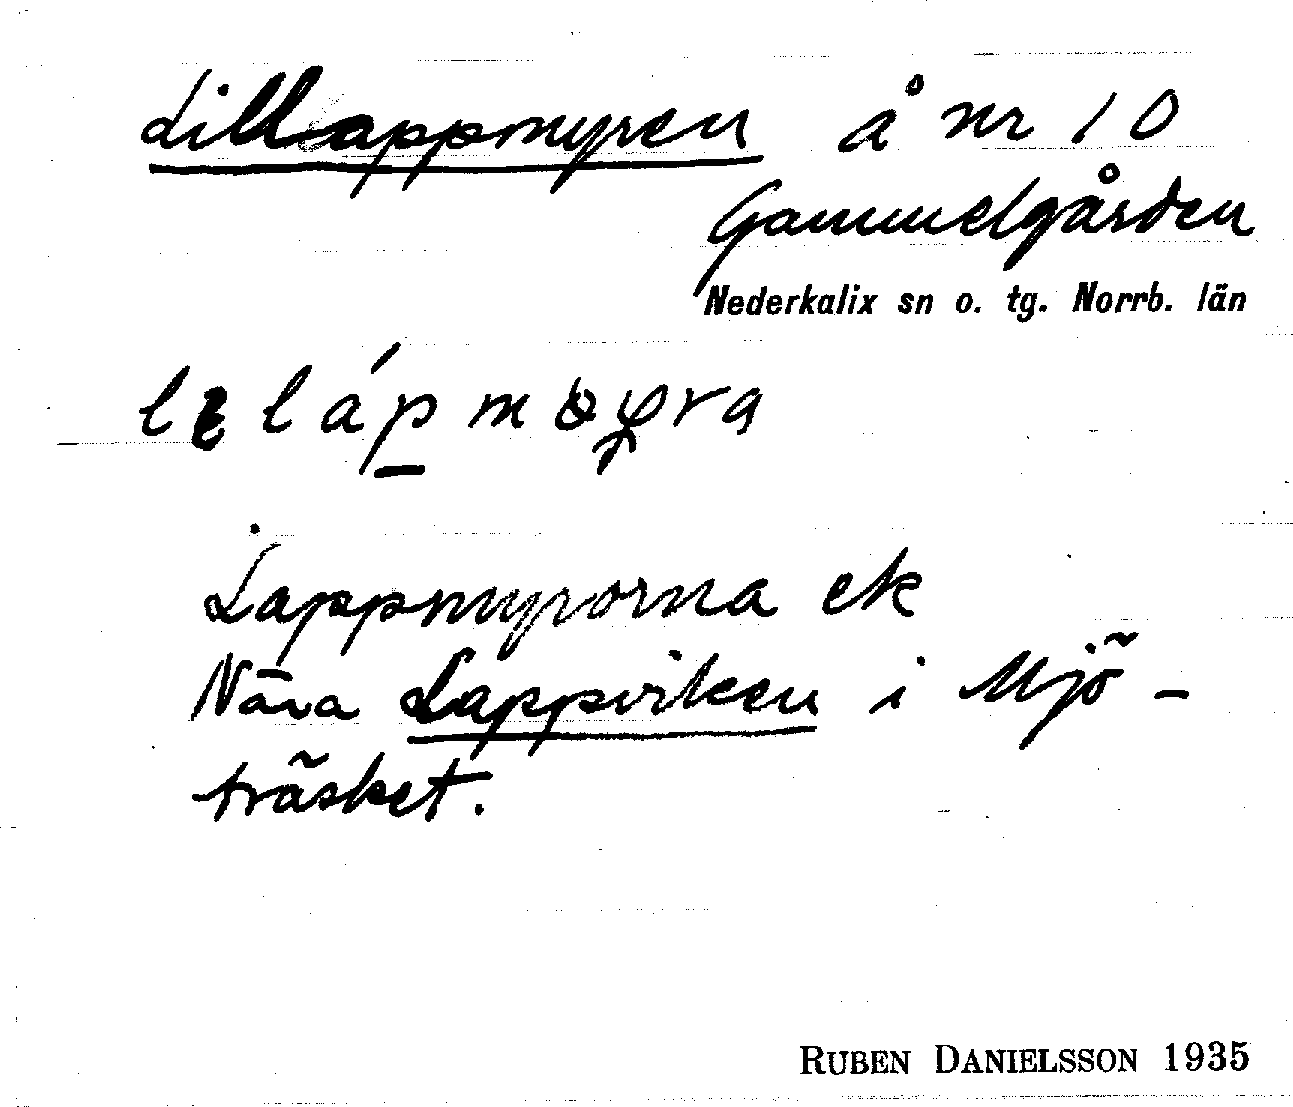 Lillappmyren å nr 10
Gammelgården
Nederkalix sn o. tg. Norrb. län
Lappmyrorna ek
Nära Lappviken i Mjö-
träsket.
RUBEN DANIELSSON 1935